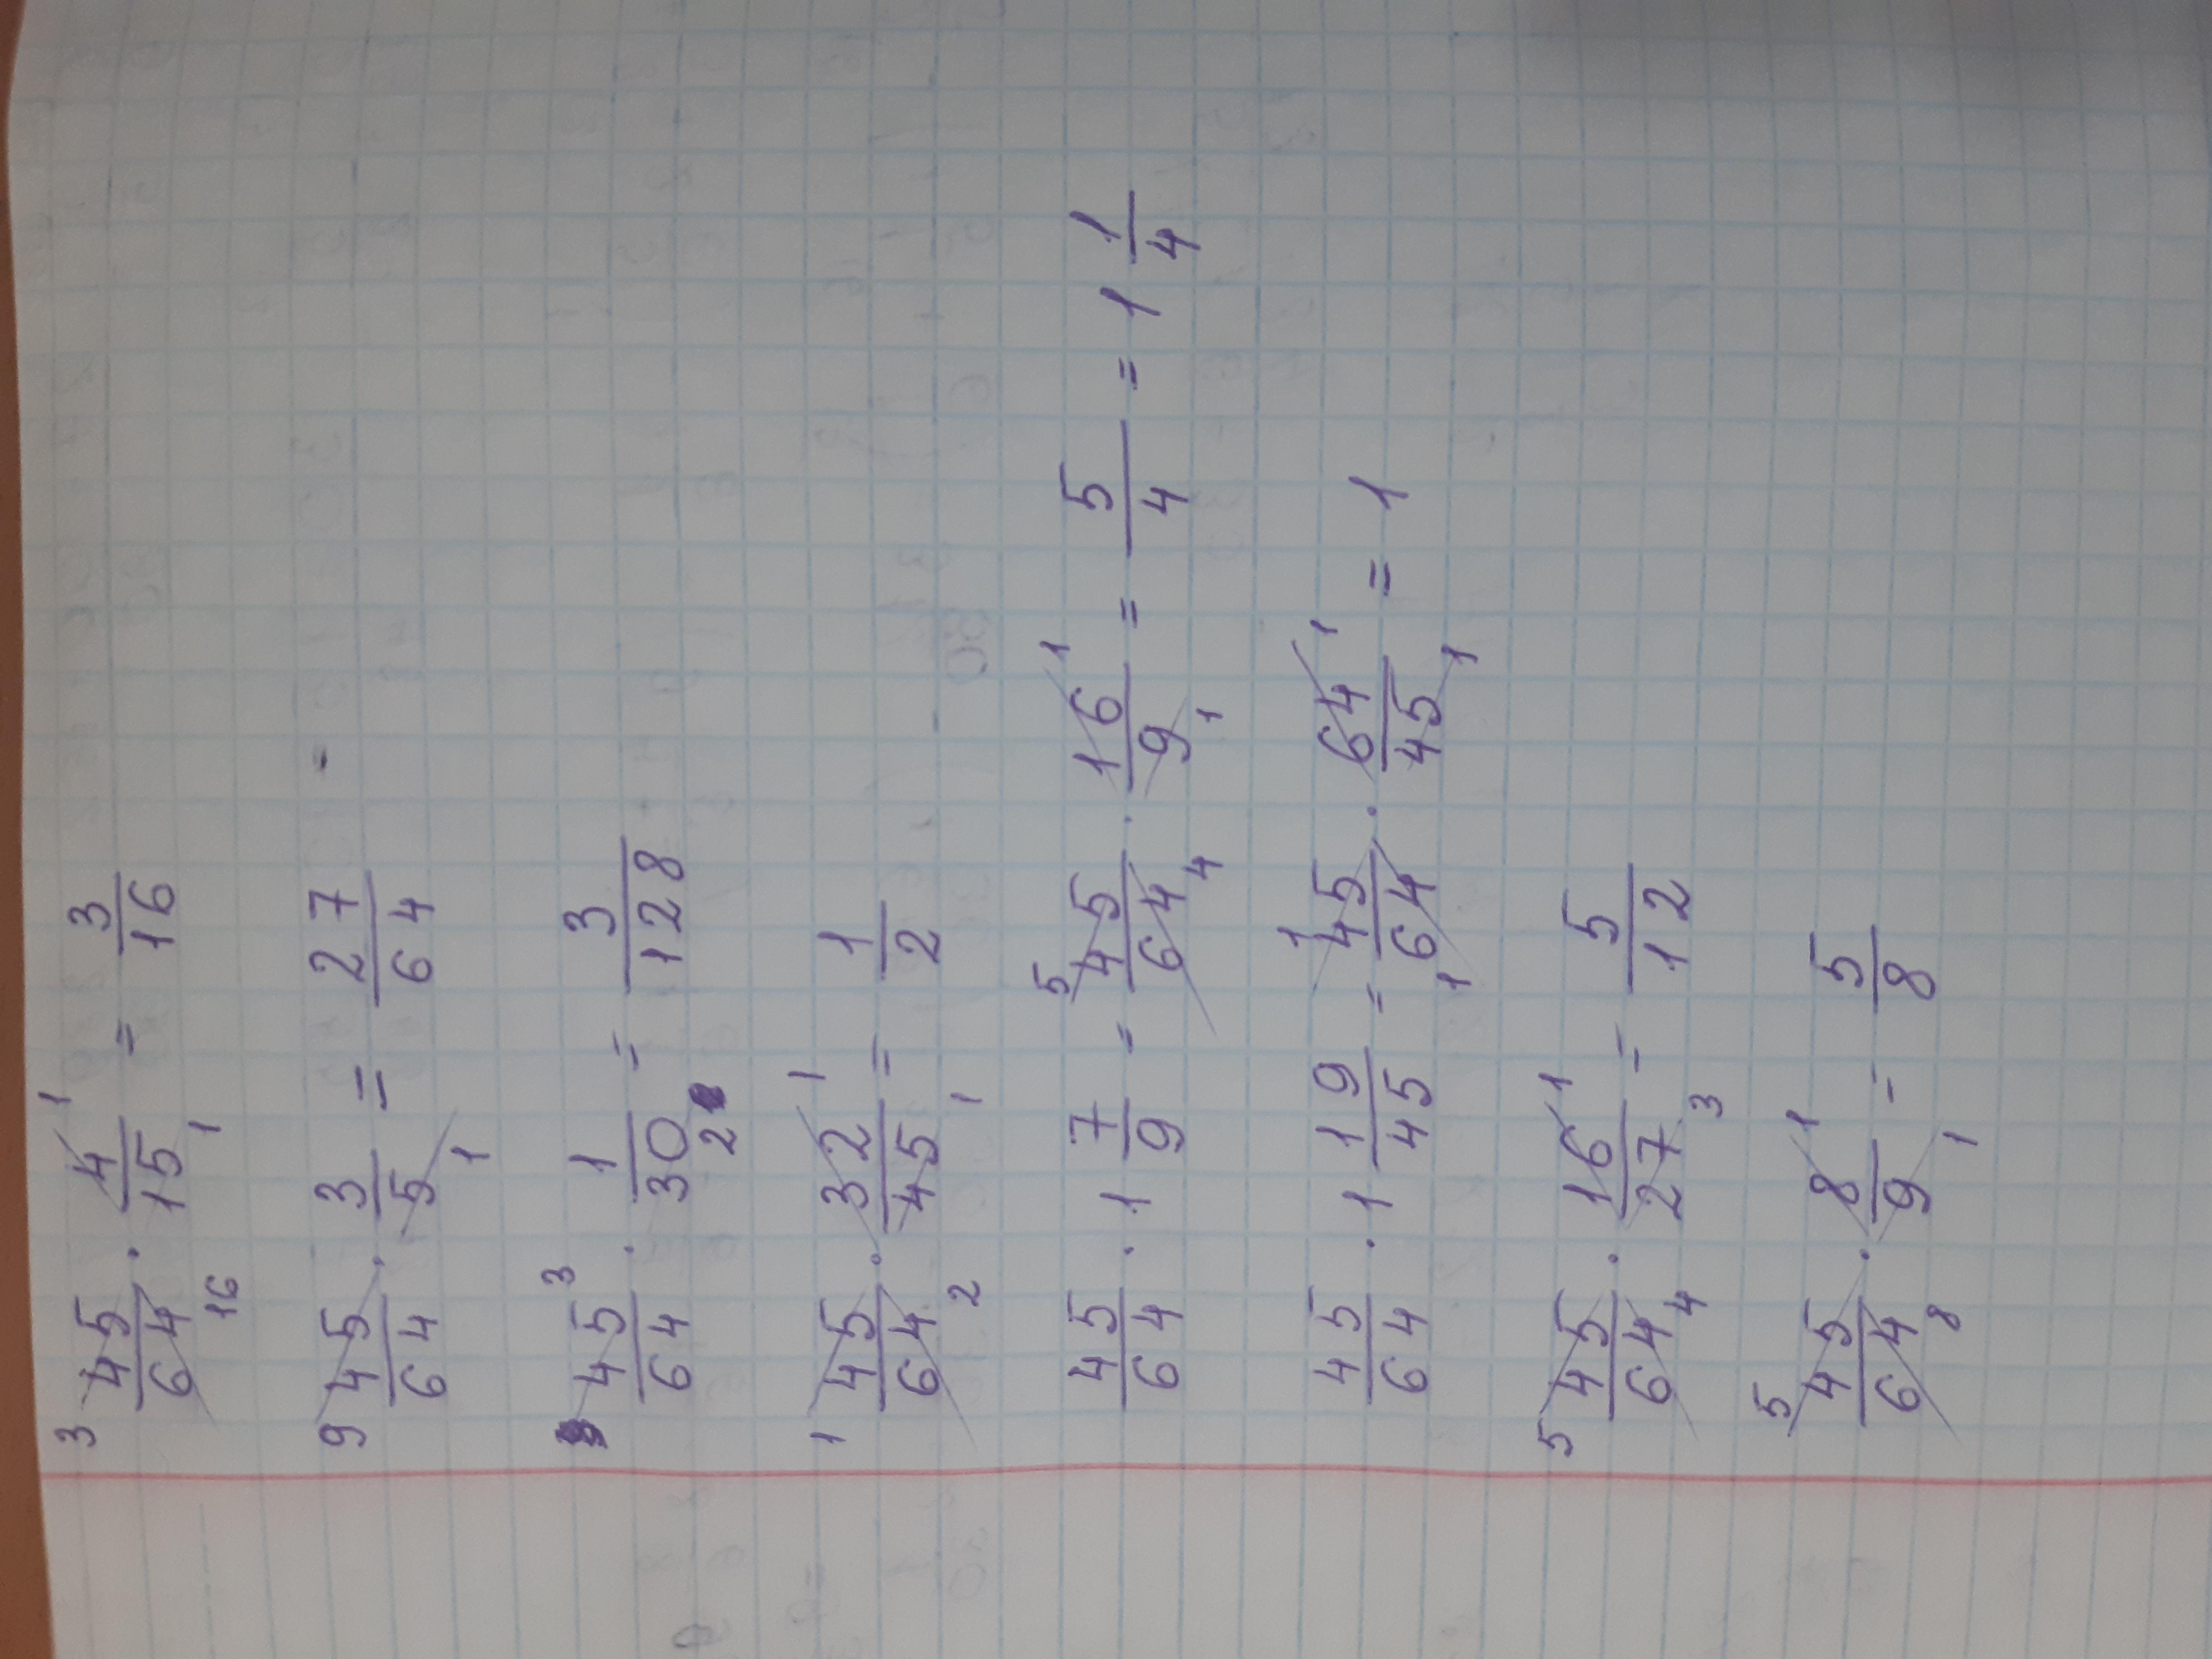 45/64 · 4/15 = 3/16
45/64 · 3/5 = 27/64
45/64 · 1/30 = 3/128
45/64 · 32/45 = 1/2
45/64 · 1 7/9 = 45/64 · 16/9 = 5/4 = 1 1/4
45/64 · 1 19/45 = 45/64 · 64/45 = 1
45/64 · 16/27 = 5/12
45/64 · 8/9 = 5/8